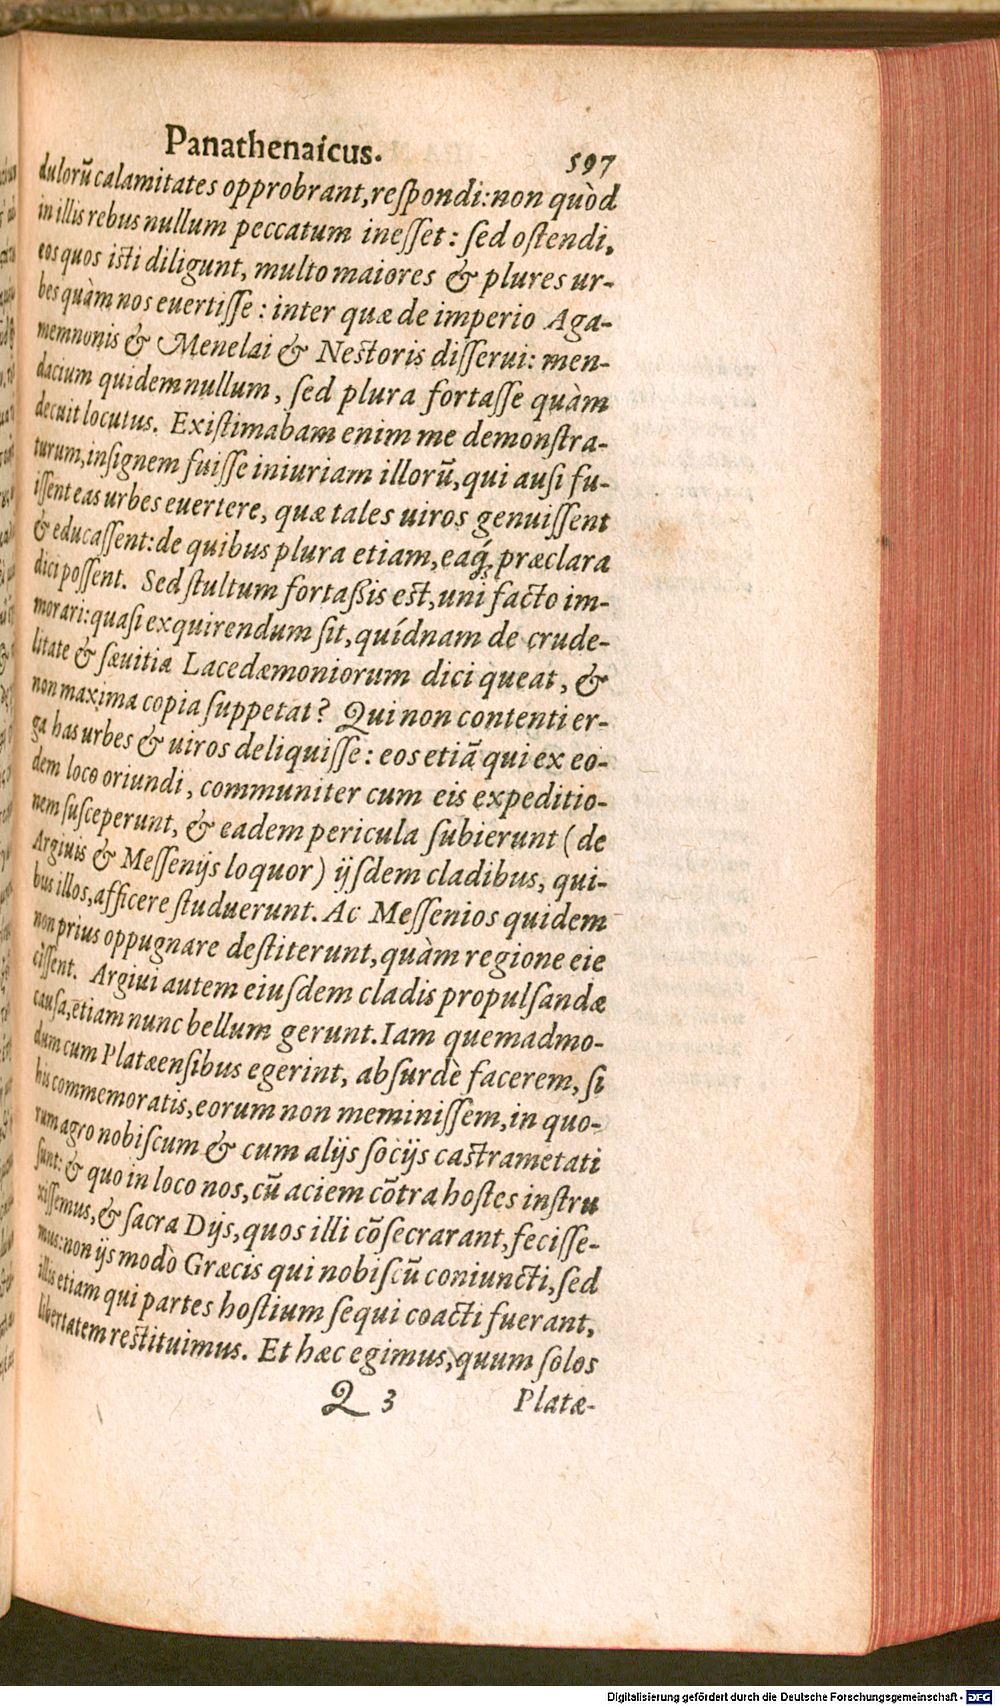 Panathenaicus. 597
dulorũ calamitates opprobrant, respondi: non quòd
in illis rebus nullum peccatum inesset: sed ostendi,
eos quos isti diligunt, multo maiores & plures ur-
bes quàm nos euertisse: inter quæ de imperio Aga-
memnonis & Menelai & Nestoris disserui: men-
dacium quidem nullum, sed plura fortasse quàm
decuit locutus. Existimabam enim me demonstra-
turum, insignem fuisse iniuriam illorũ, qui ausi fu-
issent eas urbes euertere, quæ tales uiros genuissent
& educassent: de quibus plura etiam, eaq́; præclara
dici possent. Sed stultum fortassis est, uni facto im-
morari: quasi exquirendum sit, quídnam de crude-
litate & sæuitia Lacedæmoniorum dici queat, &
non maxima copia suppetat? Qui non contenti er-
ga has urbes & uiros deliquisse: eos etiã qui ex eo-
dem loco oriundi, communiter cum eis expeditio-
nem susceperunt, & eadem pericula subierunt (de
Argiuis & Messenijs loquor) ijsdem cladibus, qui-
bus illos, afficere studuerunt. Ac Messenios quidem
non prius oppugnare destiterunt, quàm regione eie
cissent. Argiui autem eiusdem cladis propulsandæ
causa, etiam nunc bellum gerunt. Iam quemadmo-
dum cum Platæensibus egerint, absurdè facerem, si
his commemoratis, eorum non meminissem, in quo-
rum agro nobiscum & cum alijs socijs castrametati
sunt: & quo in loco nos, cũ aciem cõtra hostes instru
xissemus, & sacra Dijs, quos illi cõsecrarant, fecisse-
mus: non ijs modò Græcis qui nobiscũ coniuncti, sed
illis etiam qui partes hostium sequi coacti fuerant,
libertatem restituimus. Et hæc egimus, quum solos
Q 3 Platæ-
Digitalisierung gefördert durch die Deutsche Forschungsgemeinschaft - DFG